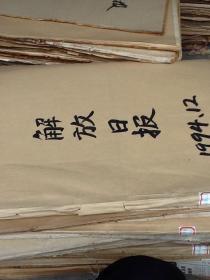 解放日报
1994.12